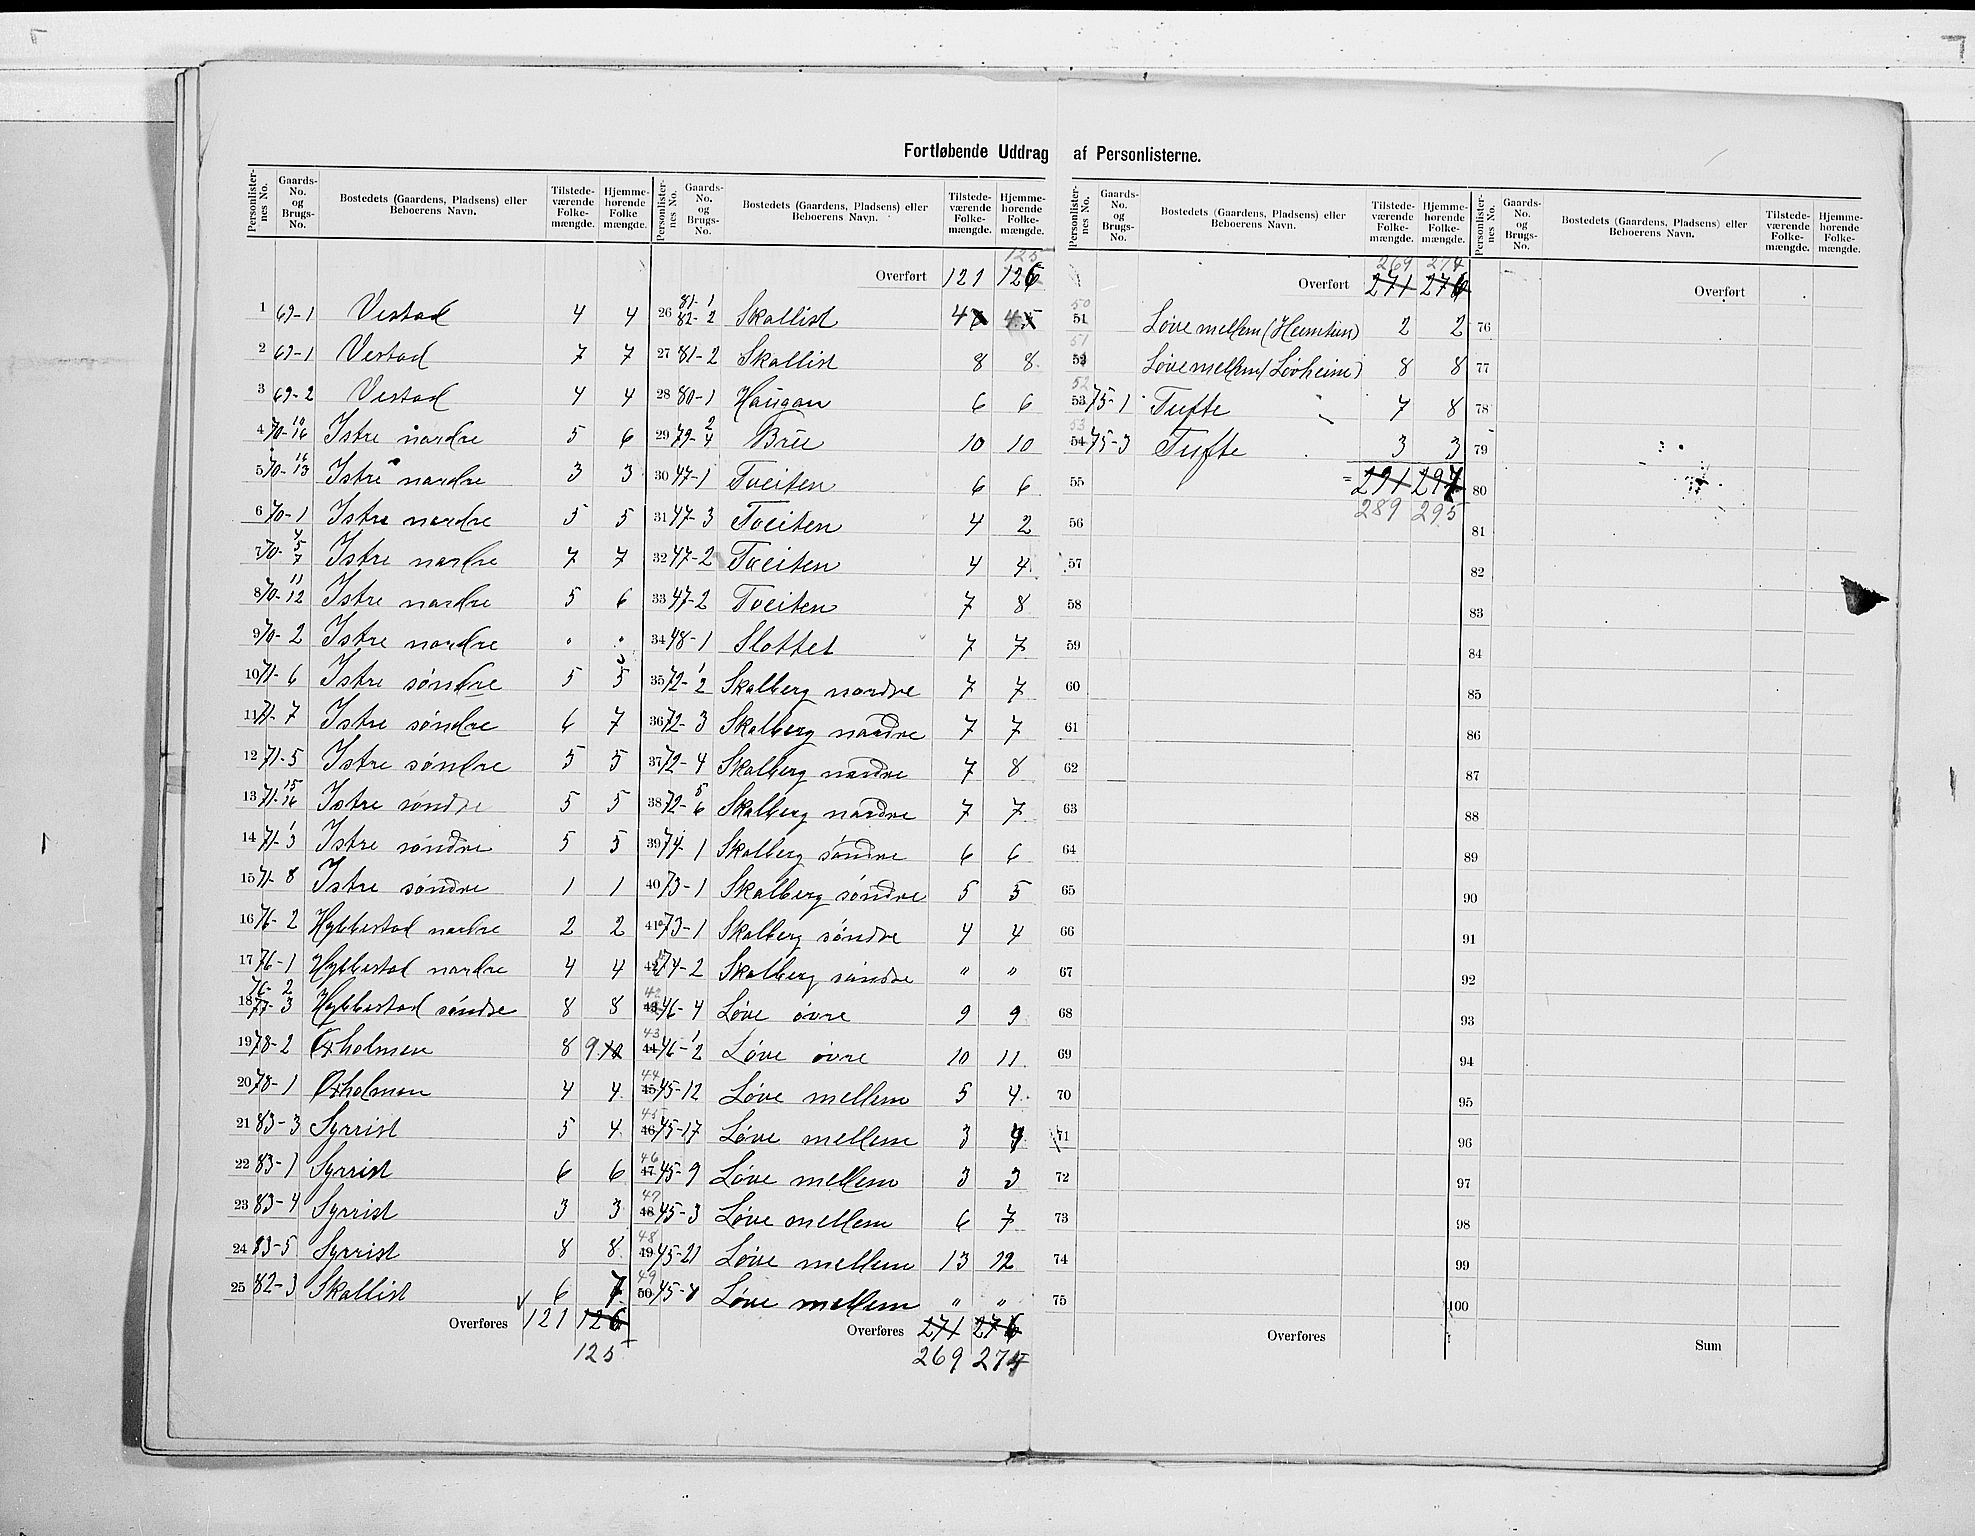 Fortløbende Uddrag af Personlisterne.
Personlisternes No. | Gaards-No. og Brugs-No. | Bostedets (Gaardens, Pladsens) eller Beboerens Navn. | Tilstedeværende Folkemængde. | Hjemmehørende Folkemængde.
1 69-1 Vestad 4 4
2 69-1 Vestad 7 7
3 69-2 Vestad 4 4
4 70-10 16 Istre nordre 5 6
5 70-16 13 Istre nordre 3 3
6 70-1 Istre nordre 5 5
7 70-4 5 7 Istre nordre 7 7
8 70-11 12 Istre nordre 5 6
9 70-2 Istre nordre " "
10 71-6 Istre söndre 5 5
11 71-7 Istre söndre 6 7
12 71-5 Istre söndre 5 5
13 71-15 16 Istre söndre 5 5
14 71-1 3 Istre söndre 5 5
15 71-8 Istre söndre 1 1
16 76-2 Hybbestad nordre 2 2
17 76-1 Hybbestad nordre 4 4
18 76-2 77-3 Hybbestad söndre 8 8
19 78-2 Oxholmen 8 9 10
20 78-1 Oxholmen 4 4
21 83-3 Syrrist 5 4
22 83-1 Syrrist 6 6
23 83-4 Syrrist 3 3
24 83-5 Syrrist 8 8
25 82-3 Skallist 6 7
Overføres 121 126
125
Personlisternes No. | Gaards-No. og Brugs-No. | Bostedets (Gaardens, Pladsens) eller Beboerens Navn. | Tilstedeværende Folkemængde. | Hjemmehørende Folkemængde.
125
Overført 121 126
26 81-1 82-2 Skallist 4 4
27 81-2 Skallist 8 8
28 80-1 Haugan 6 6
29 79-2 4 Bree 10 10
30 47-1 Tveiten 6 6
31 47-3 Tveiten 4 2
32 47-2 Tveiten 4 4
33 47-2 Tveiten 7 8
34 48-1 Slottet 7 7
35 72-1 2 Skalberg nordre 7 7
36 72-3 Skalberg nordre 7 7
37 72-4 Skalberg nordre 7 8
38 72-5 6 Skalberg nordre 7 7
39 74-1 Skalberg söndre 6 6
40 73-1 Skalberg söndre 5 5
41 73-1 Skalberg söndre 4 4
42 74-2 Skalberg söndre " "
42 43 46-4 Löve övre 9 9
43 44 46-1 2 Löve övre 10 11
44 45 45-12 Löve mellem 5 4
45 46 45-17 Löve mellem 3
46 47 45-9 Löve mellem 3 3
47 48 45-3 Löve mellem 6 7
48 49 45-21 Löve mellem 13 12
49 50 45- Löve mellem " "
Overføres 271 276
269 274
Personlisternes No. | Gaards-No. og Brugs-No. | Bostedets (Gaardens, Pladsens) eller Beboerens Navn. | Tilstedeværende Folkemængde. | Hjemmehørende Folkemængde.
269 274
Overført 271 276
50 51 Löve mellem (Heimtun) 2 2
51 52 Löve mellem (Lövheim) 8 8
52 53 75-1 Tufte 7 8
53 54 75-3 Tufte 3 3
55 = 291 297
289 295
56
57
58
59
60
61
62
63
64
65
66
67
68
69
70
71
72
73
74
75
Overføres
Personlisternes No. | Gaards-No. og Brugs-No. | Bostedets (Gaardens, Pladsens) eller Beboerens Navn. | Tilstedeværende Folkemængde. | Hjemmehørende Folkemængde.
Overført
76
77
78
79
80
81
82
83
84
85
86
87
88
89
90
91
92
93
94
95
96
97
98
99
100
Sum